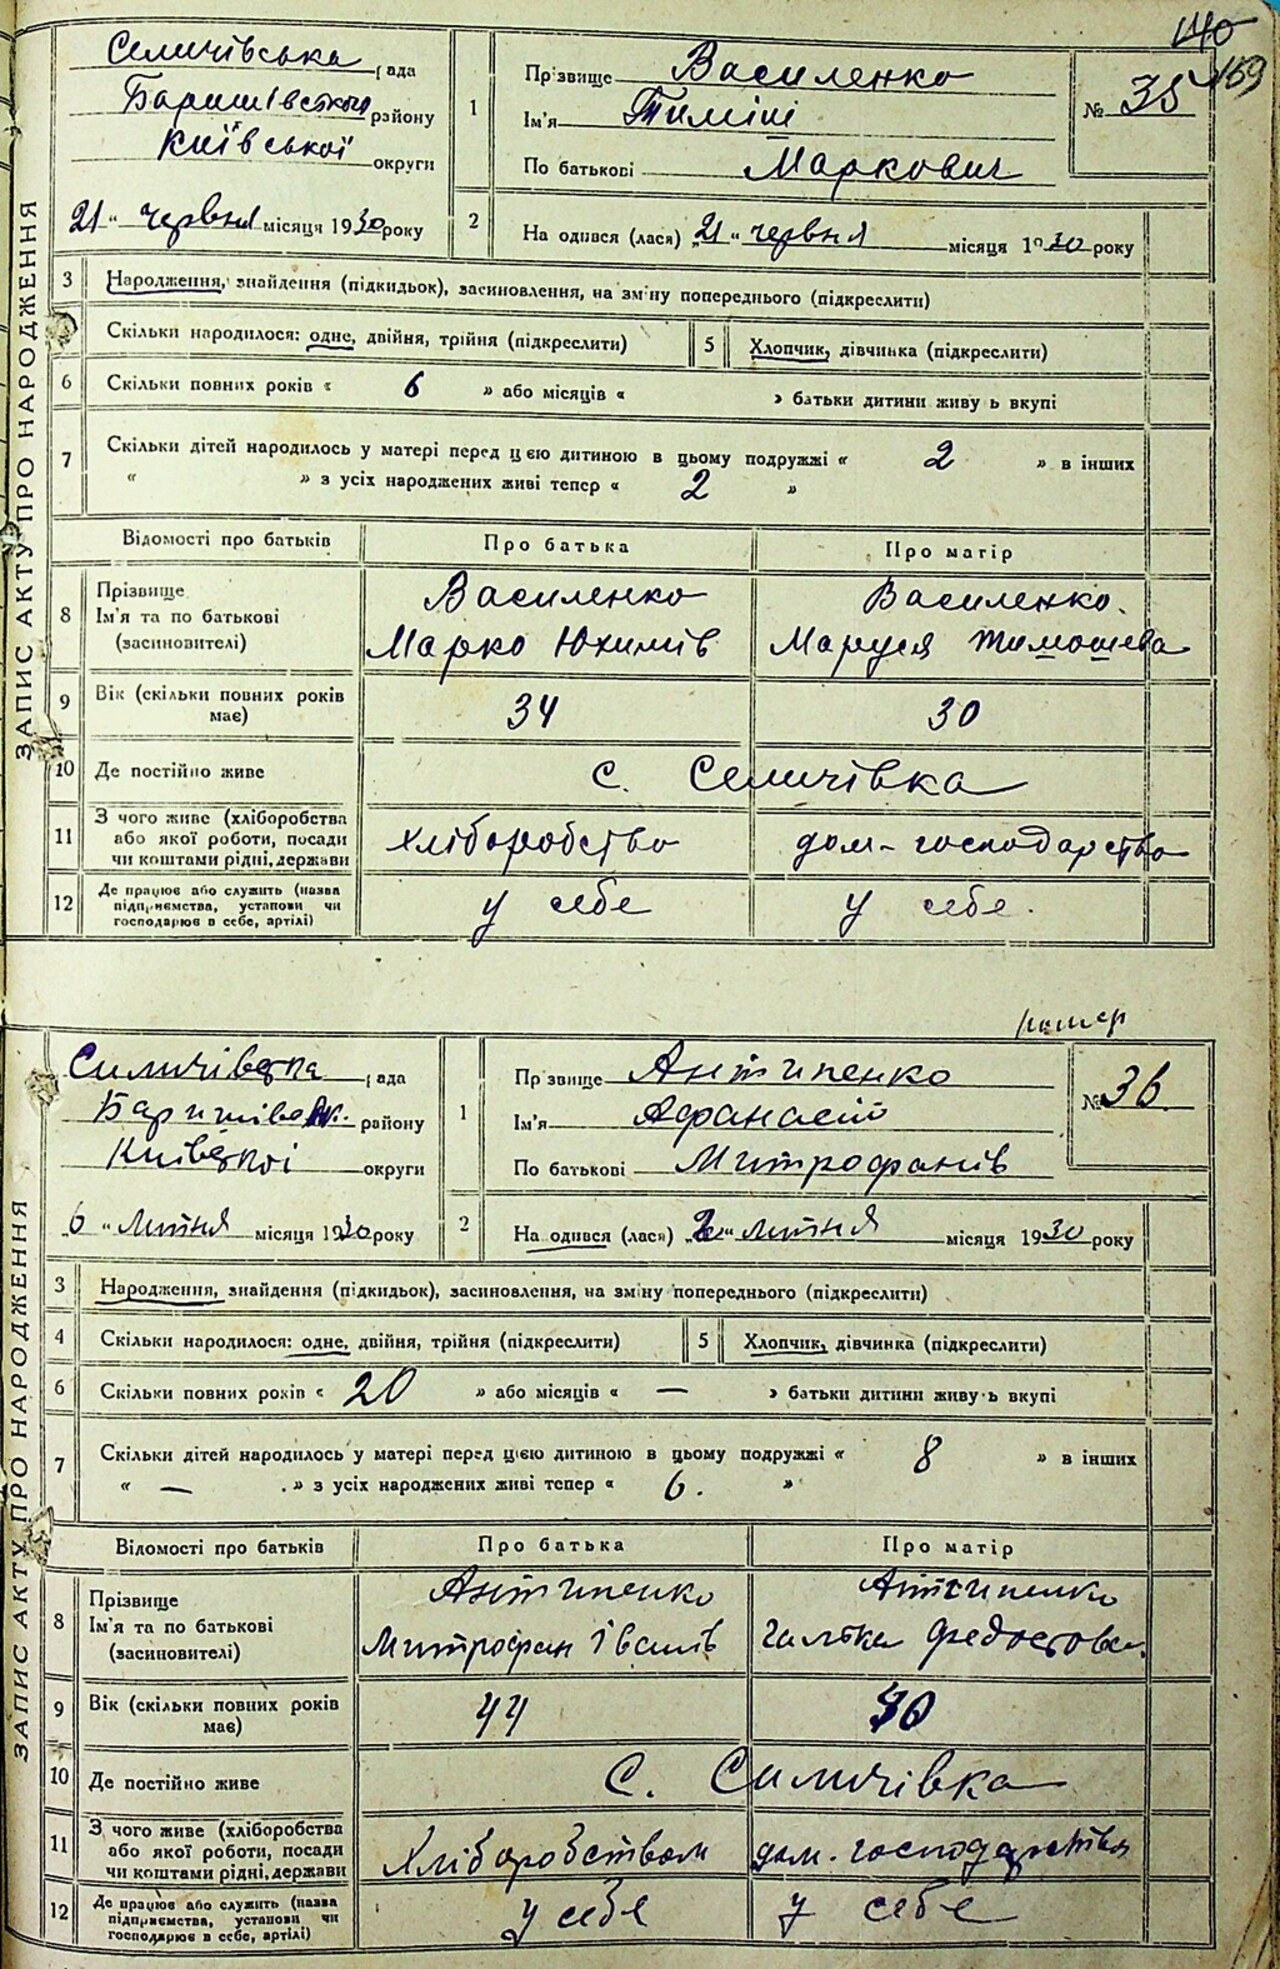 140
159
ЗАПИС АКТУ ПРО НАРОДЖЕННЯ
Селичівська рада
Баришівського району
Київської округи
21 " червня місяця 1930 року
1 Прізвище Василенко
Ім'я
По батькові Маркович
№ 35
2 Народився (лася) „21" червня місяця 1930 року
3 Народження, знайдення (підкидьок), засиновлення, на зміну попереднього (підкреслити)
Скільки народилося: одне, двійня, трійня (підкреслити) 5 Хлопчик, дівчинка (підкреслити)
6 Скільки повних років « 6 » або місяців « » батьки дитини живуть вкупі
7 Скільки дітей народилось у матері перед цією дитиною в цьому подружжі « 2 » в інших
« » з усіх народжених живі тепер « 2 »
Відомості про батьків Про батька Про матір
8 Прізвище Василенко Василенко
Ім'я та по батькові Марко Юхимів Маруся Тимошева
(засиновителі)
9 Вік (скільки повних років має) 34 30
10 Де постійно живе с. Селичівка
11 З чого живе (хліборобства
або якої роботи, посади хліборобство дом-господарство
чи коштами рідні, держави
12 Де працює або служить (назва
підприємства, установи чи у себе у себе.
господарює в себе, артілі)
ЗАПИС АКТУ ПРО НАРОДЖЕННЯ
помер
Силичівська рада
Баришівськ. району
Київської округи
„6 " липня місяця 1930 року
1 Прізвище Антипенко
Ім'я Афанасій
По батькові Митрофанів
№ 36.
2 Народився (лася) липня місяця 1930 року
3 Народження, знайдення (підкидьок), засиновлення, на зміну попереднього (підкреслити)
4 Скільки народилося: одне, двійня, трійня (підкреслити) 5 Хлопчик, дівчинка (підкреслити)
6 Скільки повних років « 20 » або місяців « — » батьки дитини живуть вкупі
7 Скільки дітей народилось у матері перед цією дитиною в цьому подружжі « 8 » в інших
« — » з усіх народжених живі тепер « 6. »
Відомості про батьків Про батька Про матір
8 Прізвище Антипенко Антипенко
Ім'я та по батькові Митрофан Іванів Галька Федосова
(засиновителі)
9 Вік (скільки повних років має) 44 40
10 Де постійно живе С. Силичівка
11 З чого живе (хліборобства
або якої роботи, посади Хліборобством дом-господарством
чи коштами рідні, держави
12 Де працює або служить (назва
підприємства, установи чи у себе у себе
господарює в себе, артілі)